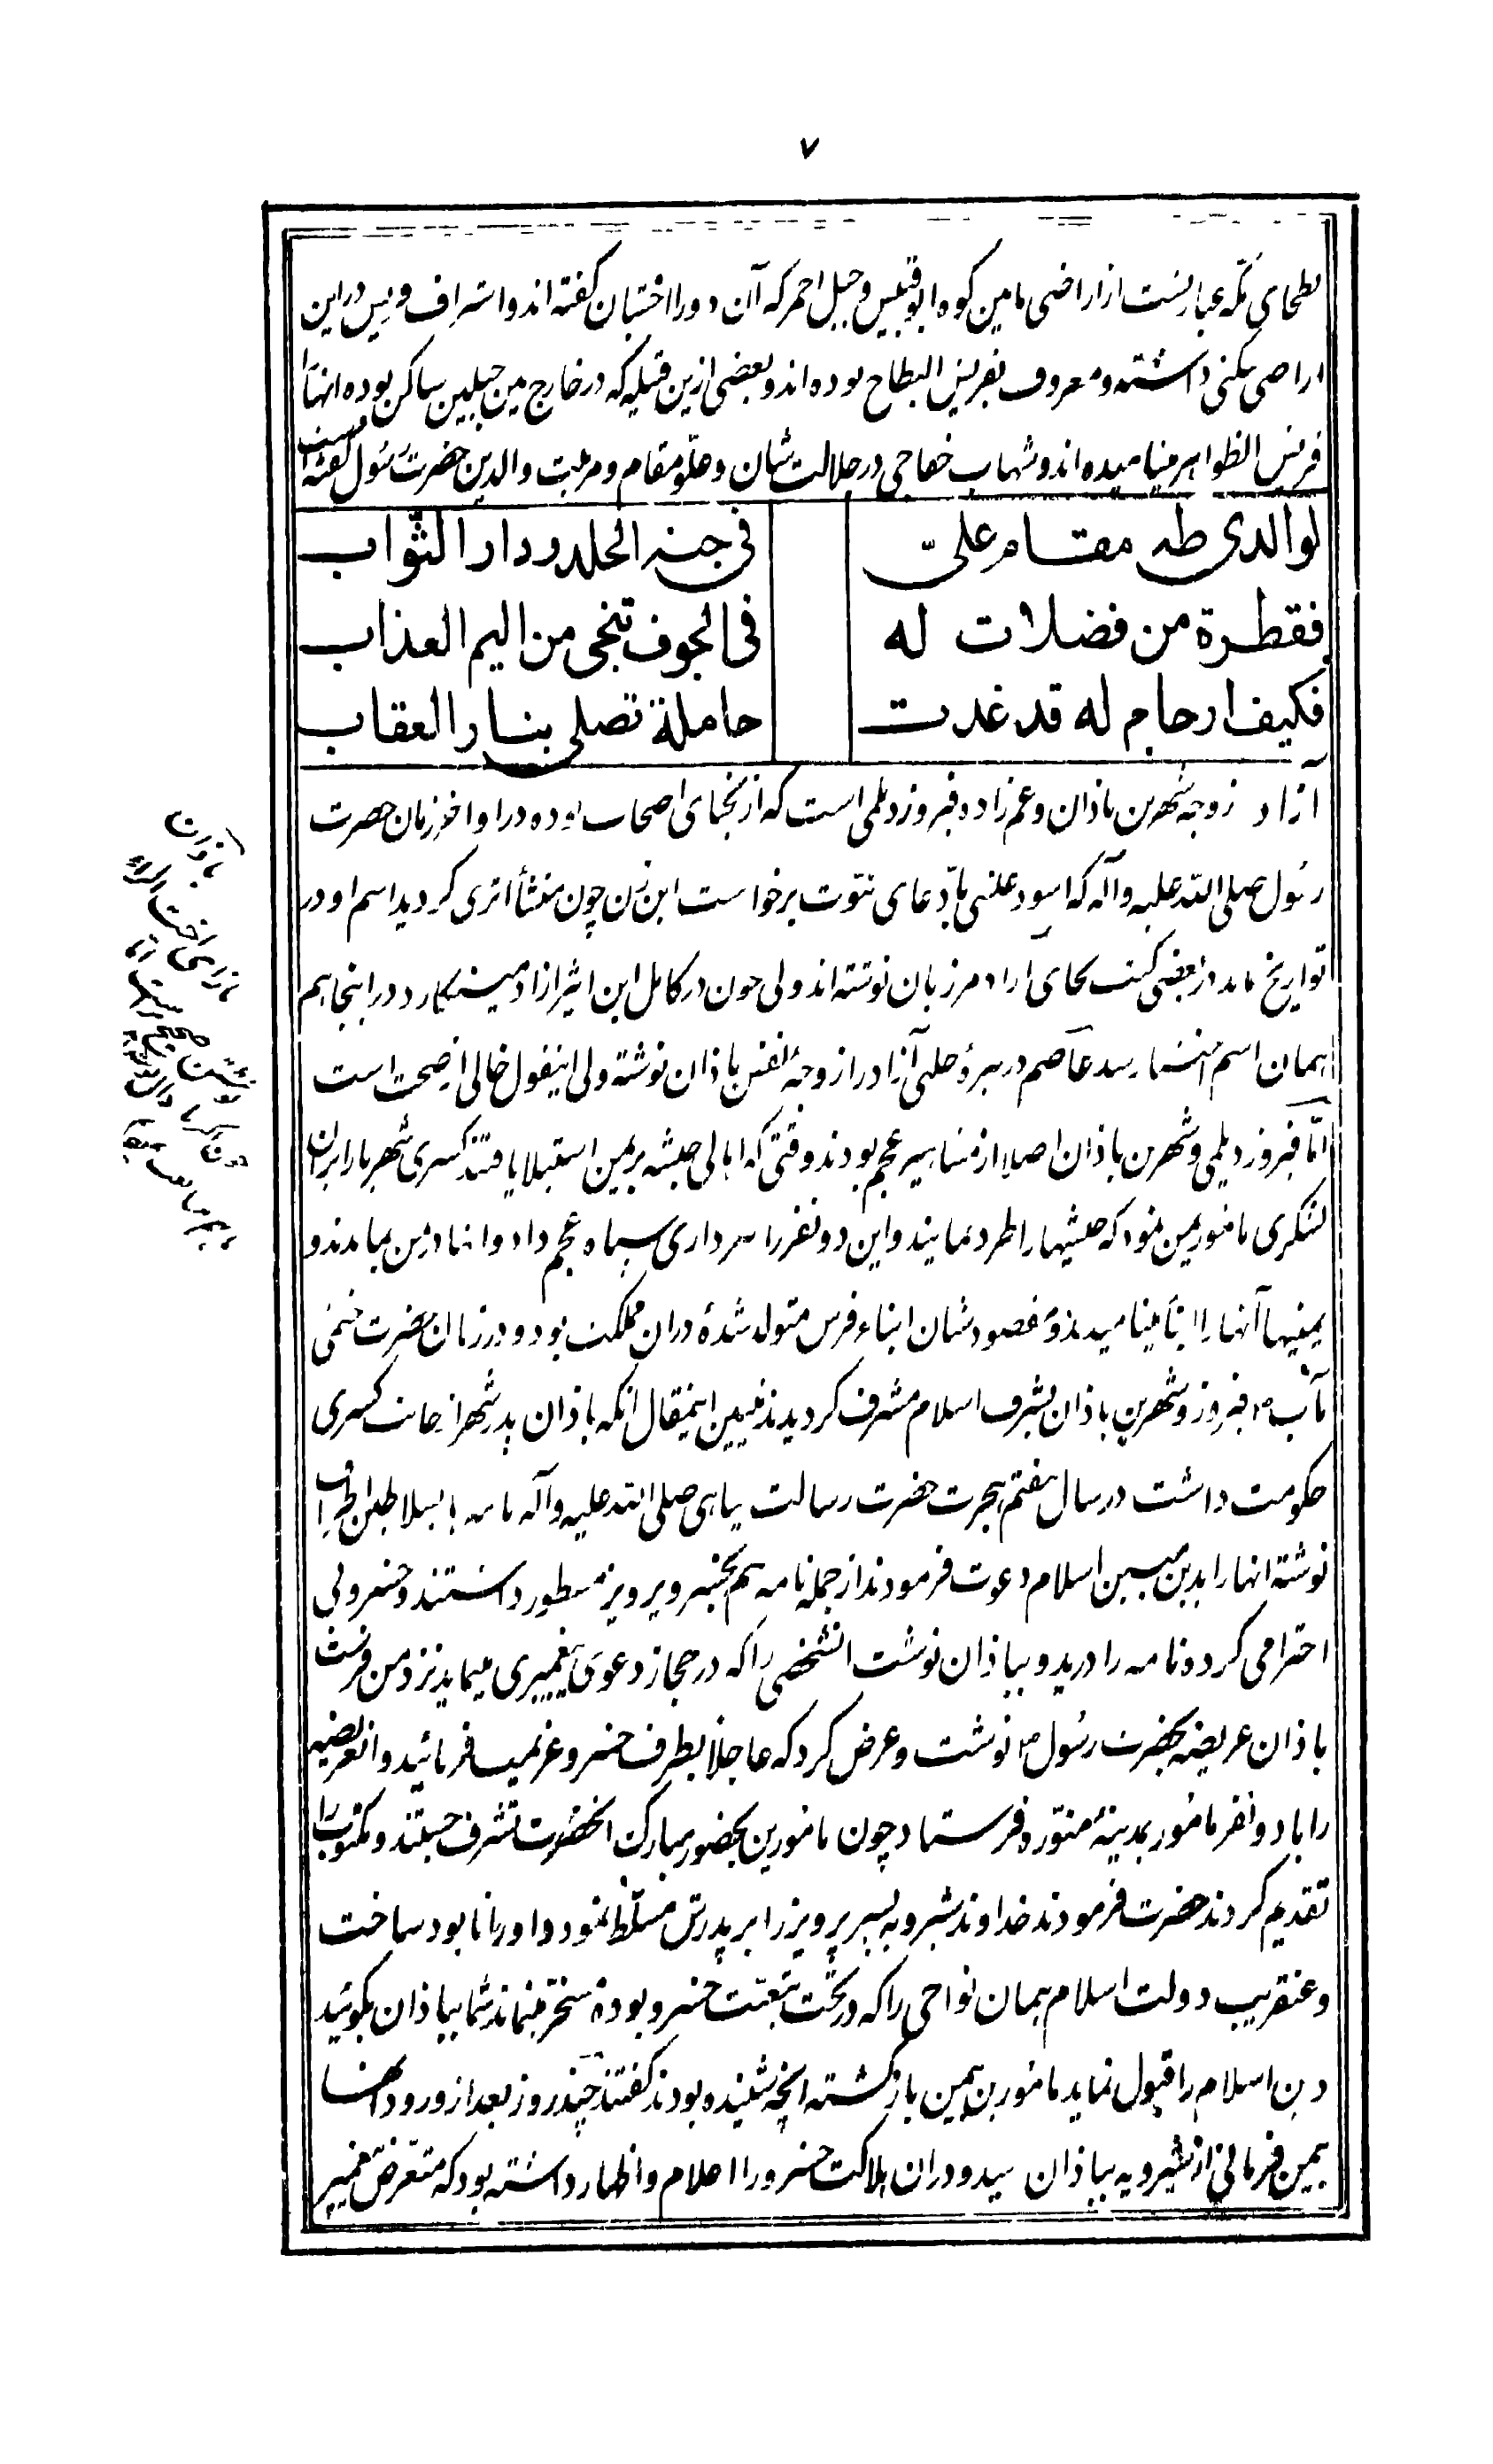 ۷
بطحای مکه عبارتست از اراضی مابین کوه ابوقبیس و جبل احمر که آن دو را اخشبان گفته اند و اشراف قریش در این
اراضی سکنی داشته و معروف بقریش البطاح بوده اند و بعضی ازین قبیله که در خارج بین جبلین ساکن بوده انها را
قریش الظواهر مینامیده اند و شهاب خفاجی در جلالت شان و علو مقام و مرتبت والدین حضرت رسول گفته است
لوالدی طه مقام علیّ
فی جنة الخلد ودار الثّواب
فقطرة من فضلات له
فی الجوف تنجی من الیم العذاب
فکیف ارحام له قد غدت
حاملة تصلی بنار العقاب
آزاد زوجه شهربن باذان و عم زاده فیروز دیلمی است که از نجبای اصحاب بوده در اواخر زمان حضرت
رسول صلی الله علیه وآله که اسود عنسی بادّعای نبوّت برخواست این زن چون منشأ اثری کردید اسم او در
تواریخ ماند در بعضی کتب بجای آزاد مرزبان نوشته اند ولی چون در کامل ابن اثیر ازاد مینکارد در اینجا هم
بهمان اسم عاصم در سیرۀ حلبی آزاد را زوجۀ نفس باذان نوشته ولی اینقول خالی از صحت است
امّا فیروز دیلمی و شهربن باذان اصلا از مشاهیر عجم بودند وقتی که اهالی حبشه بریمن استیلا یافتند کسری شهریار ایران
لشکری مامور یمن نمود که حبشیها را طرد نمایند و این دو نفر را سرداری سپاه عجم داد و انها در یمن بماندند و
یمنیها آنها را ابنأ مینامیدند و مقصودشان ابناء فرس متولد شدۀ در ان مملکت بود و در زمان حضرت ختمی
مآب ص فیروز و شهربن باذان بشرف اسلام مشرف کردیدند تبیین اینمقال انکه باذان پدر شهر از جانب کسری
حکومت داشت در سال هفتم هجرت حضرت رسالت پناهی صلی الله علیه وآله نامه ها بسلاطین اطراف
نوشته انها را بدین مبین اسلام دعوت فرمودند از جمله نامه هم بخسرو پرویز مسطور داشتند و خسرو بی
احترامی کرد و نامه را درید و بباذان نوشت انشخصی را که در حجاز دعوی پیغمبری مینماید نزد من فرست
باذان عریضه بحضرت رسول ص نوشت و عرض کرد که عاجلا بطرف خسرو عزیمت فرمائید و انعریضه
را با دو نفر مامور بمدینۀ منوّره فرستاد چون مامورین بحضور مبارک انحضرت تشرف جستند و مکتوب را
تقدیم کردند حضرت فرمودند خداوند شیرویه پسر پرویز را بر پدرش مسلّط نمود و او را نابود ساخت
و عنقریب دولت اسلام همان نواحی را که در تحت تبعیّت خسرو بوده مسخّر مینماید شما بباذان بگوئید
دین اسلام را قبول نماید مامورین بیمن بازکشته انچه شنیده بودند کفتند چند روز بعد از ورود انها
بیمن فرمانی از شیرویه بباذان رسید و دران هلاکت خسرو را اعلام و اظهار داشته بود که متعرّض پیغمبر